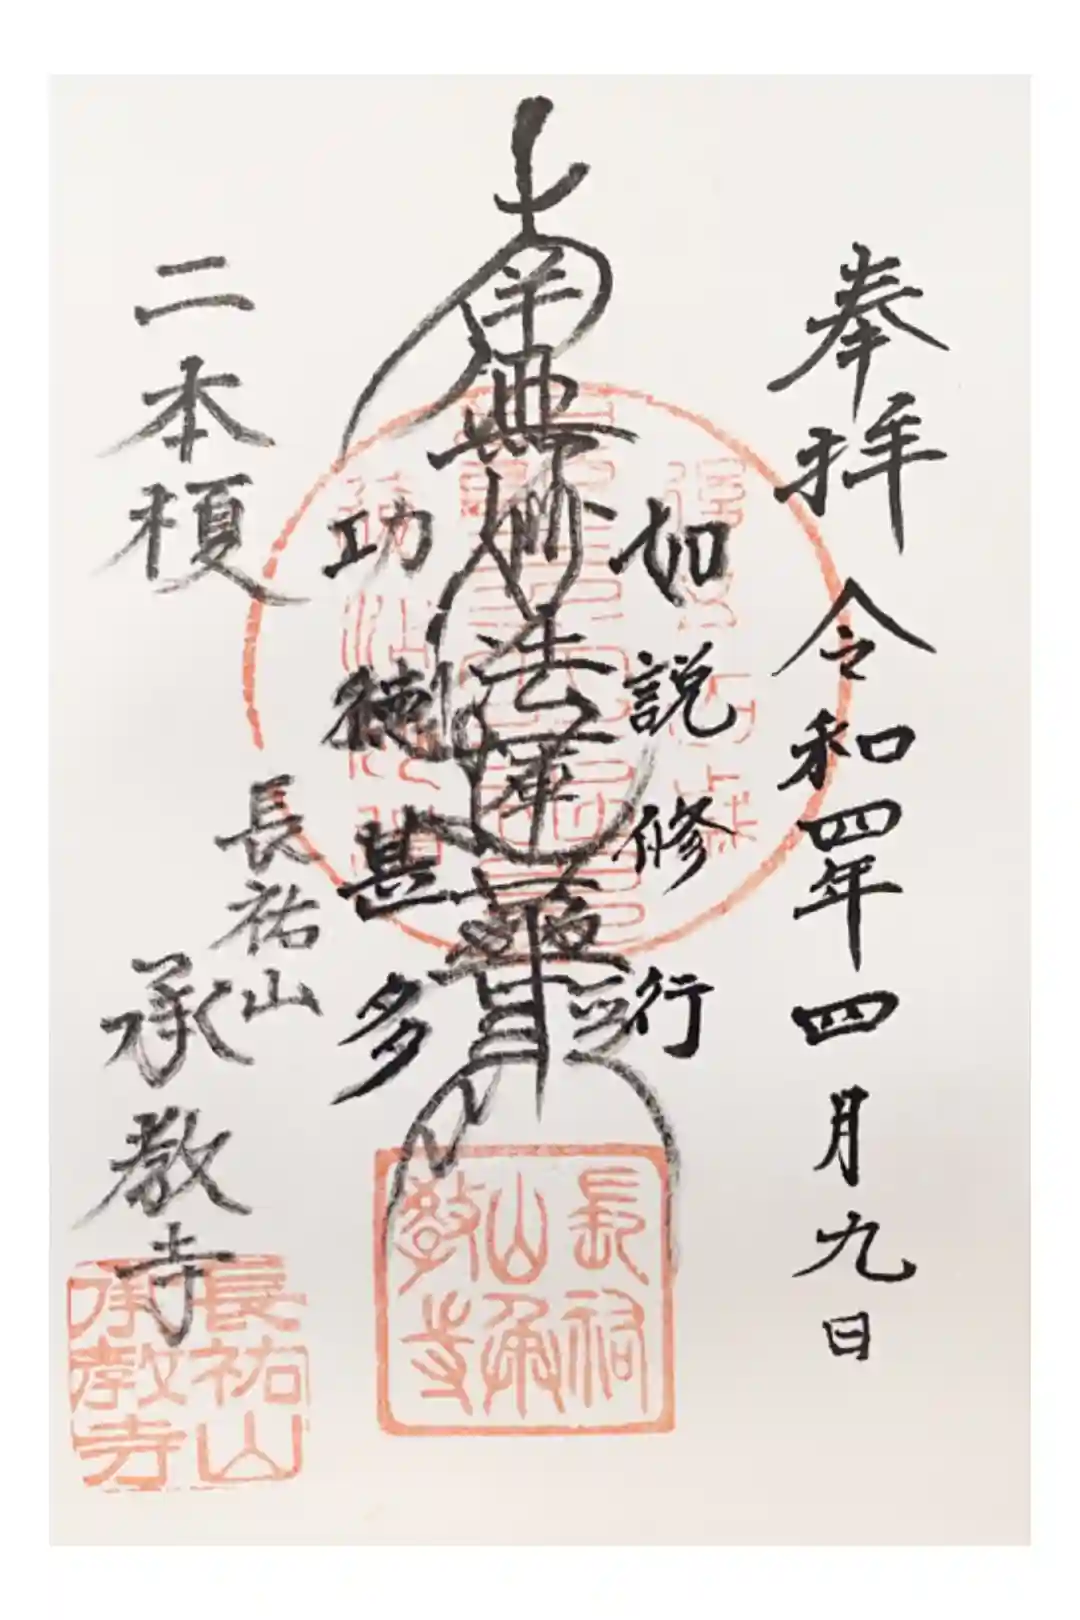 奉拝 令和四年四月九日
如説修行
南無妙法蓮華経
功徳甚多
長祐山
二本榎 承教寺
長祐山承教寺
長祐山承教寺